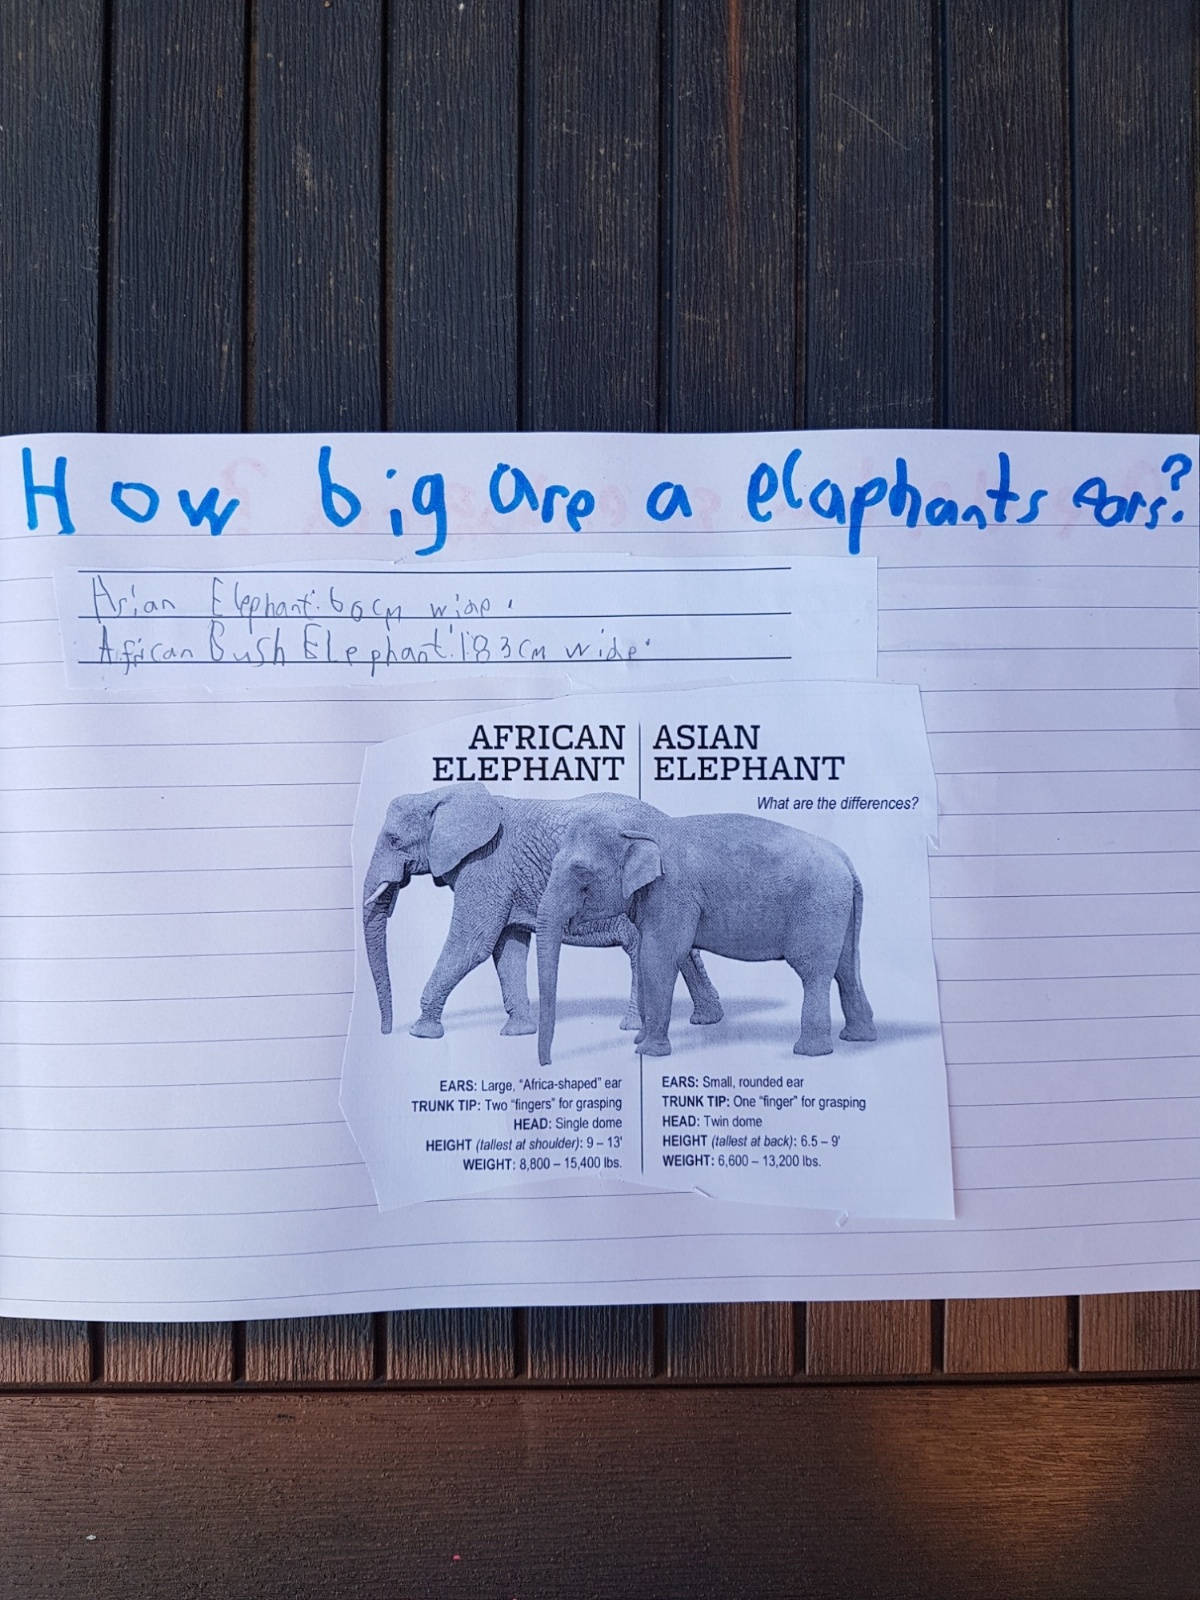 How big are a elaphants ears?
Asian Elephant: 60cm wide.
African Bush Elephant: 183cm wide.
AFRICAN ELEPHANT
ASIAN ELEPHANT
What are the differences?
EARS: Large, "Africa-shaped" ear
TRUNK TIP: Two "fingers" for grasping
HEAD: Single dome
HEIGHT (tallest at shoulder): 9 – 13'
WEIGHT: 8,800 – 15,400 lbs.
EARS: Small, rounded ear
TRUNK TIP: One "finger" for grasping
HEAD: Twin dome
HEIGHT (tallest at back): 6.5 – 9'
WEIGHT: 6,600 – 13,200 lbs.